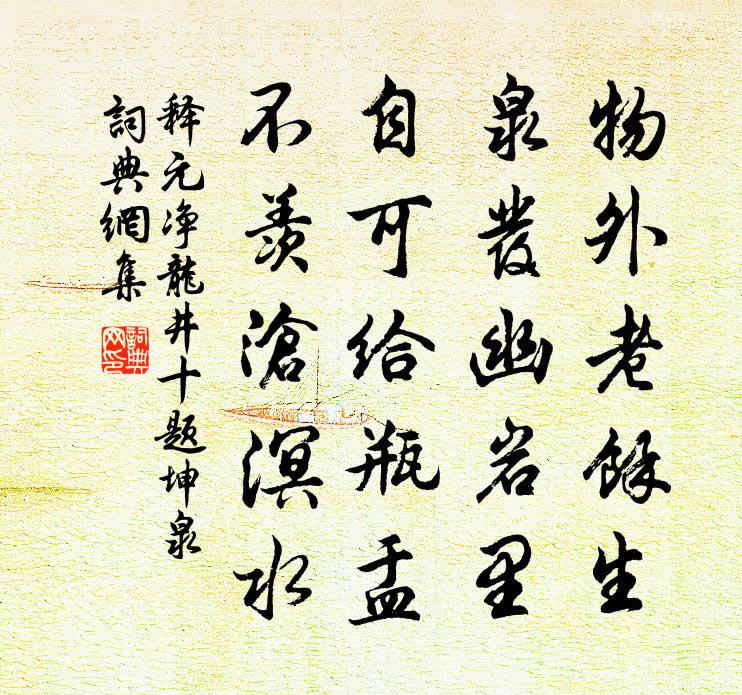 物外老餘生
泉發幽岩里
自可給瓶盂
不羨滄溟水
释元净龍井十題坤泉
詞典網集
詞典
网印